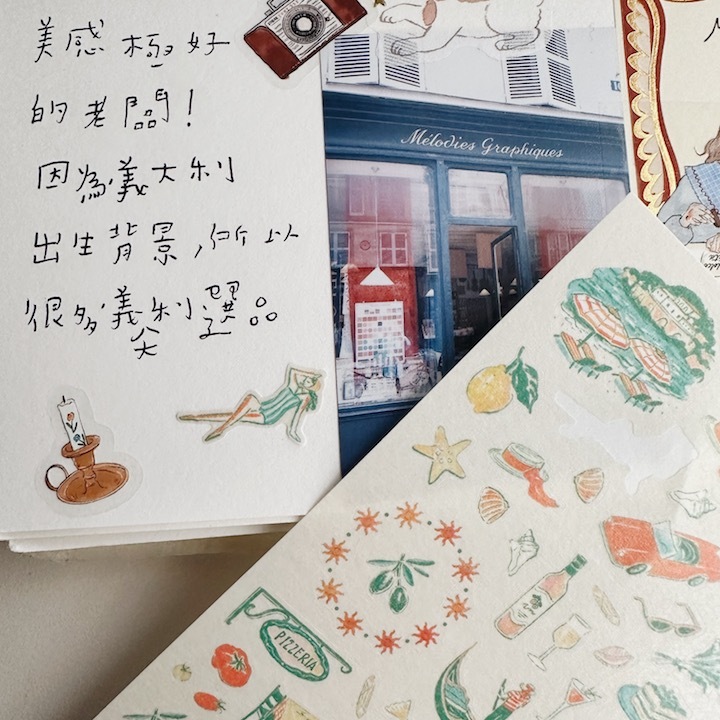 美感極好
的老闆！
因為義大利
出生背景，所以
很多義大利選品
Mélodies Graphiques
PIZZERIA